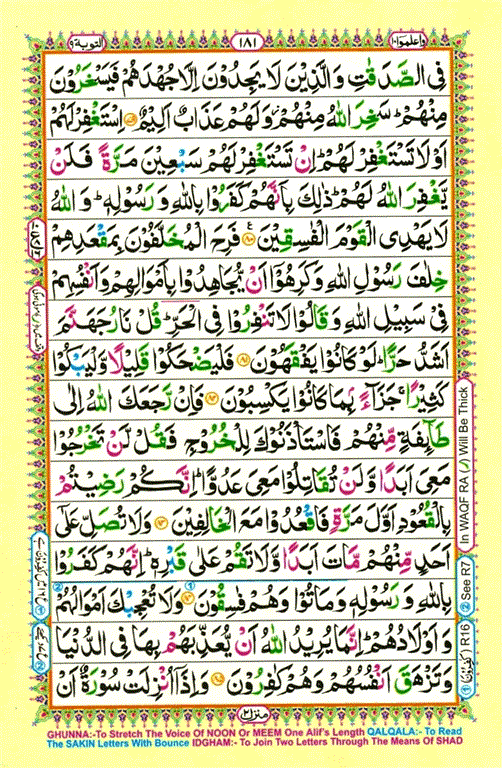 واعلموا ١٠
١٨١
التوبة ٩
فِى الصَّدَقٰتِ وَالَّذِيْنَ لَا يَجِدُوْنَ اِلَّا جُهْدَهُمْ فَيَسْخَرُوْنَ
مِنْهُمْ ؕ سَخِرَ اللّٰهُ مِنْهُمْ ؗ وَلَهُمْ عَذَابٌ اَلِيْمٌ ﴿٧٩﴾ اِسْتَغْفِرْ لَهُمْ
اَوْ لَا تَسْتَغْفِرْ لَهُمْ ؕ اِنْ تَسْتَغْفِرْ لَهُمْ سَبْعِيْنَ مَرَّةً فَلَنْ
يَّغْفِرَ اللّٰهُ لَهُمْ ؕ ذٰلِكَ بِاَنَّهُمْ كَفَرُوْا بِاللّٰهِ وَرَسُوْلِهٖ ؕ وَاللّٰهُ
لَا يَهْدِى الْقَوْمَ الْفٰسِقِيْنَ ﴿٨٠﴾ فَرِحَ الْمُخَلَّفُوْنَ بِمَقْعَدِهِمْ
خِلٰفَ رَسُوْلِ اللّٰهِ وَكَرِهُوْۤا اَنْ يُّجَاهِدُوْا بِاَمْوَالِهِمْ وَاَنْفُسِهِمْ
فِىْ سَبِيْلِ اللّٰهِ وَقَالُوْا لَا تَنْفِرُوْا فِى الْحَرِّ ؕ قُلْ نَارُ جَهَنَّمَ
اَشَدُّ حَرًّا ؕ لَوْ كَانُوْا يَفْقَهُوْنَ ﴿٨١﴾ فَلْيَضْحَكُوْا قَلِيْلًا وَّلْيَبْكُوْا
كَثِيْرًا ۚ جَزَآءًۢ بِمَا كَانُوْا يَكْسِبُوْنَ ﴿٨٢﴾ فَاِنْ رَّجَعَكَ اللّٰهُ اِلٰى
طَآئِفَةٍ مِّنْهُمْ فَاسْتَاْذَنُوْكَ لِلْخُرُوْجِ فَقُلْ لَّنْ تَخْرُجُوْا
مَعِىَ اَبَدًا وَّلَنْ تُقَاتِلُوْا مَعِىَ عَدُوًّا ؕ اِنَّكُمْ رَضِيْتُمْ
بِالْقُعُوْدِ اَوَّلَ مَرَّةٍ فَاقْعُدُوْا مَعَ الْخٰلِفِيْنَ ﴿٨٣﴾ وَلَا تُصَلِّ عَلٰٓى
اَحَدٍ مِّنْهُمْ مَّاتَ اَبَدًا وَّلَا تَقُمْ عَلٰى قَبْرِهٖ ؕ اِنَّهُمْ كَفَرُوْا
بِاللّٰهِ وَرَسُوْلِهٖ وَمَاتُوْا وَهُمْ فٰسِقُوْنَ ﴿٨٤﴾ وَلَا تُعْجِبْكَ اَمْوَالُهُمْ
وَاَوْلَادُهُمْ ؕ اِنَّمَا يُرِيْدُ اللّٰهُ اَنْ يُّعَذِّبَهُمْ بِهَا فِى الدُّنْيَا
وَتَزْهَقَ اَنْفُسُهُمْ وَهُمْ كٰفِرُوْنَ ﴿٨٥﴾ وَاِذَاۤ اُنْزِلَتْ سُوْرَةٌ اَنْ
منزل ٢
In WAQF RA (ر) Will Be Thick
② See R7
R16
GHUNNA:-To Stretch The Voice Of NOON Or MEEM One Alif's Length QALQALA:- To Read
The SAKIN Letters With Bounce IDGHAM:- To Join Two Letters Through The Means Of SHAD